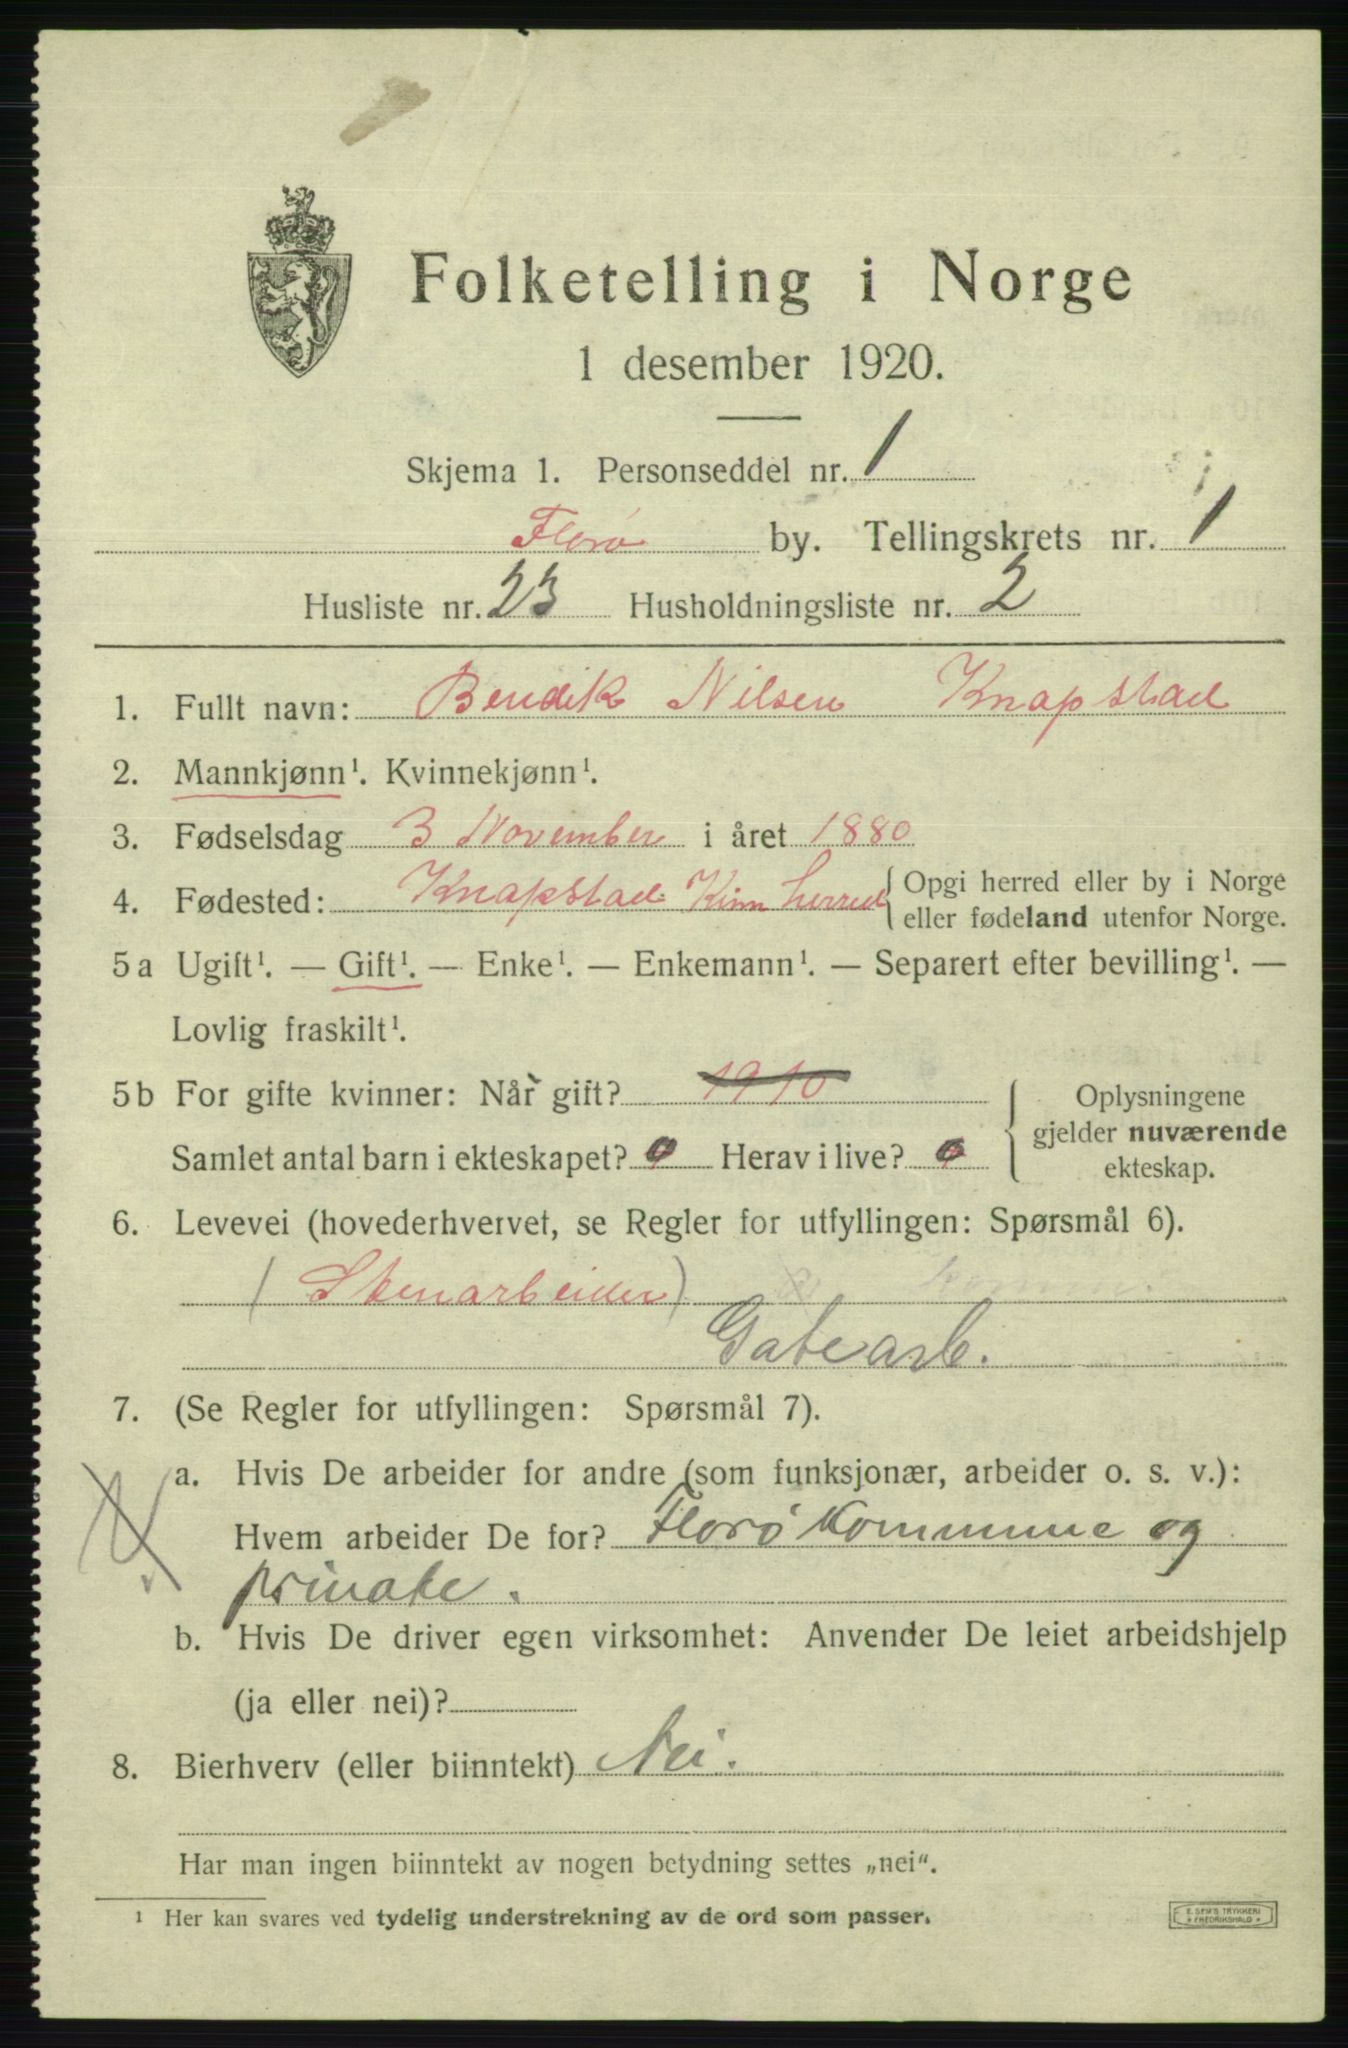 Folketelling i Norge
1 desember 1920.
Skjema 1. Personseddel nr. 1
Florø by. Tellingskrets nr. 1
Husliste nr. 23 Husholdningsliste nr. 2
1. Fullt navn: Bendik Nilsen Knapstad
2. Mannkjønn¹. Kvinnekjønn¹.
3. Fødselsdag 3 November i året 1880
4. Fødested: Knapstad Kinn herred { Opgi herred eller by i Norge
eller fødeland utenfor Norge.
5a Ugift¹. — Gift¹. — Enke¹. — Enkemann¹. — Separert efter bevilling¹. —
Lovlig fraskilt¹.
5b For gifte kvinner: Når gift? 1910
Samlet antal barn i ekteskapet? 0 Herav i live? 0
Oplysningene
gjelder nuværende
ekteskap.
6. Levevei (hovederhvervet, se Regler for utfyllingen: Spørsmål 6).
(Stenarbeider) komm.
Gatearb.
7. (Se Regler for utfyllingen: Spørsmål 7).
a. Hvis De arbeider for andre (som funksjonær, arbeider o. s. v.):
Hvem arbeider De for? Florø Kommune og
private.
b. Hvis De driver egen virksomhet: Anvender De leiet arbeidshjelp
(ja eller nei)?
8. Bierhverv (eller biinntekt) Nei.
Har man ingen biinntekt av nogen betydning settes „nei“.
¹ Her kan svares ved tydelig understrekning av de ord som passer.
E. SEM'S TRYKKERI
* FREDRIKSHALD *